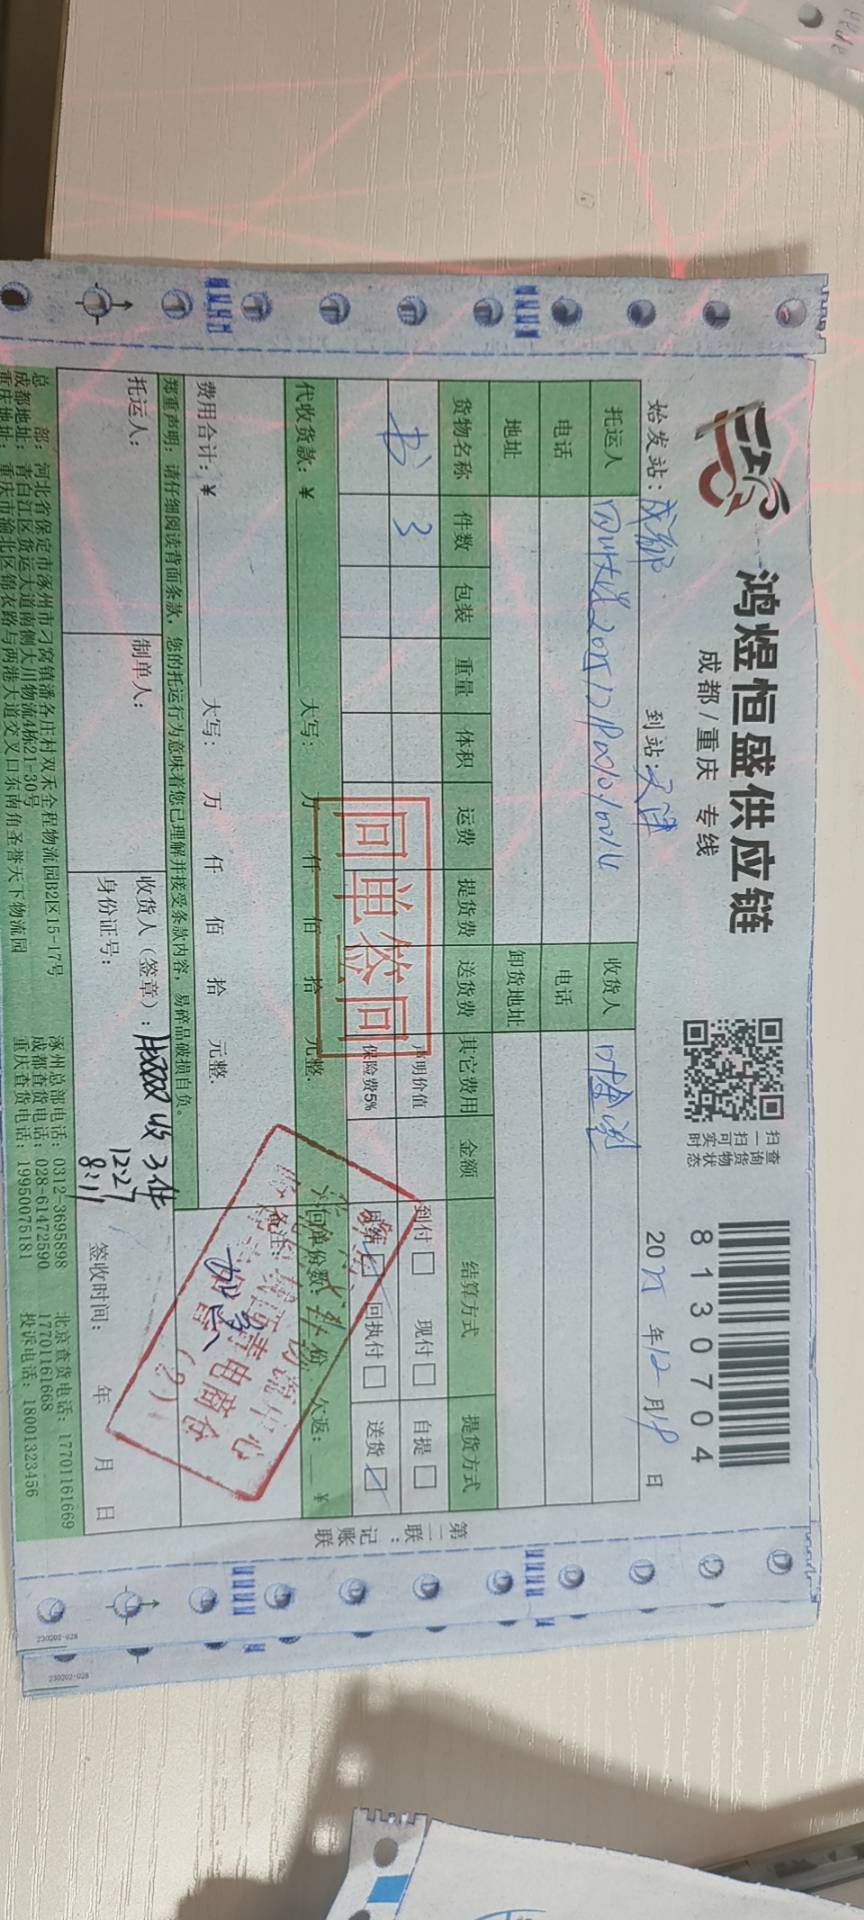 鸿煜恒盛供应链
成都/重庆 专线
扫一扫可实时
查询货物状态
8130704
始发站：成都 到站：天津 2025年12月19日
托运人 收货人
电话 电话
地址 卸货地址
货物名称 件数 包装 重量 体积 运费 提货费 送货费 其它费用 金额 结算方式 提货方式
书 3 声明价值 到付 现付 自提
保险费5% 月结 回执付 送货
回单签回
代收货款：¥ 大写： 万 仟 佰 拾 元整. 回单份数： 份, 欠返： ¥
费用合计：¥ 大写： 万 仟 佰 拾 元整. 备注：
郑重声明：请仔细阅读背面条款，您的托运行为意味着您已理解并接受条款内容，易碎品破损自负。
托运人： 制单人： 收货人（签章）： 收3件
身份证号： 12.27 签收时间： 年 月 日
8:11
总 部：河北省保定市涿州市刁窝镇潘各庄村双禾全程物流园B2区15-17号 涿州总部电话：0312-3695898 北京查货电话：17701161669
成都地址：青白江区货运大道南侧大川物流4栋21-30号 成都查货电话：028-61472590 17701161668
重庆地址：重庆市渝北区锦衣路与两港大道交叉口东南角圣誉天下物流园 重庆查货电话：19950075181 投诉电话：18001323456
第二联：记账联
230202-028
230202-028